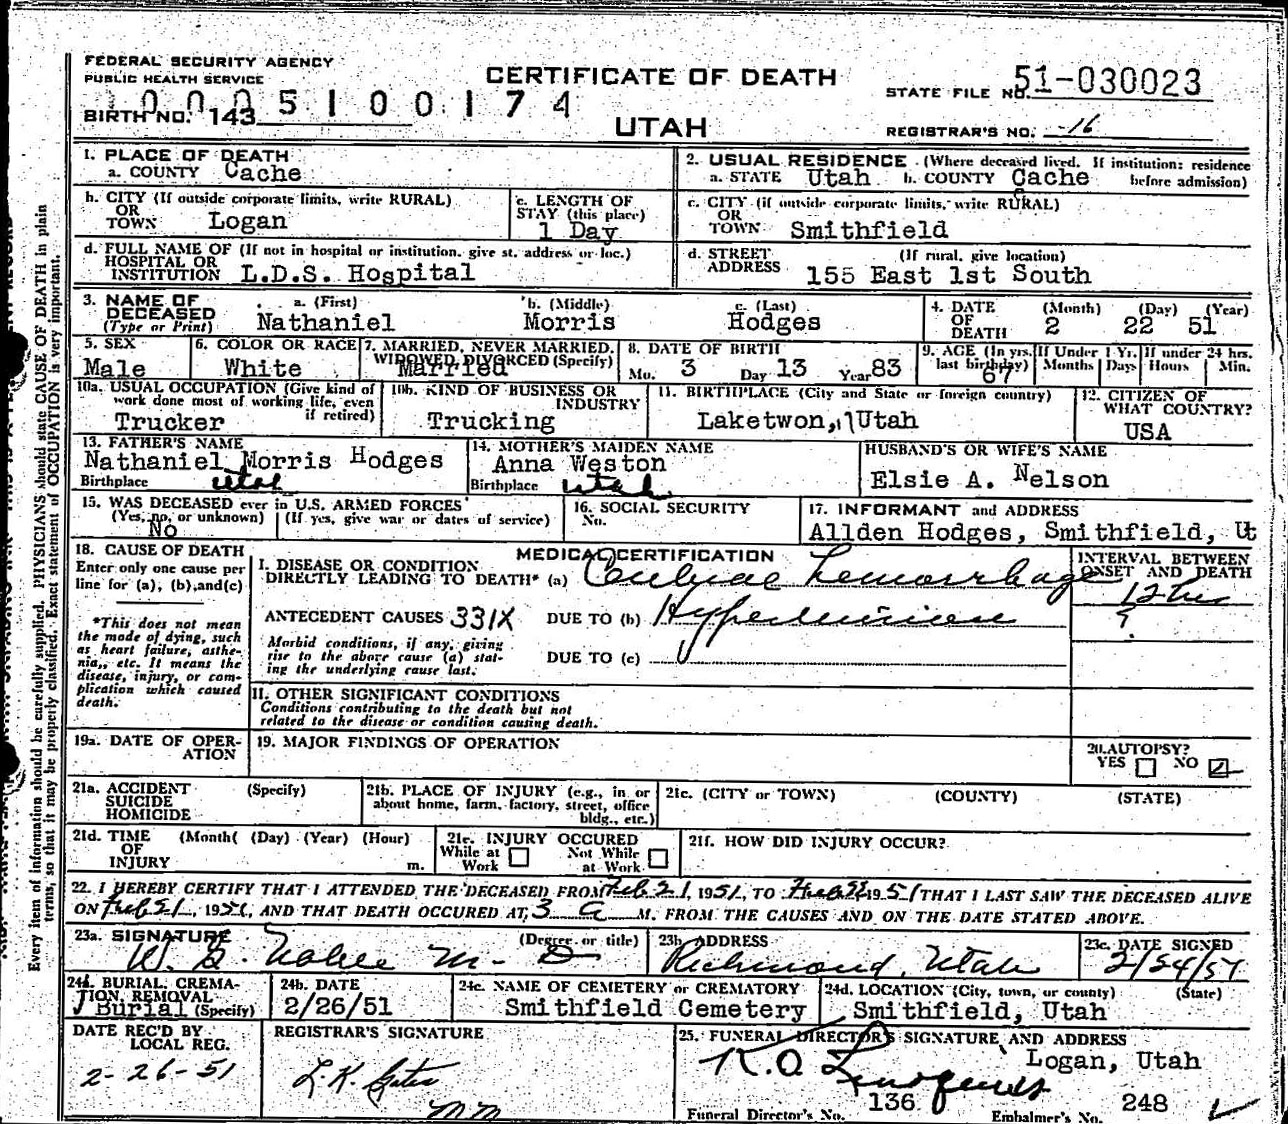 FEDERAL SECURITY AGENCY
PUBLIC HEALTH SERVICE
CERTIFICATE OF DEATH
STATE FILE NO. 51-030023
0 0 0 5 1 0 0 1 7 4
BIRTH NO. 143
UTAH
REGISTRAR'S NO. 16
1. PLACE OF DEATH
a. COUNTY Cache
2. USUAL RESIDENCE (Where deceased lived. If institution: residence before admission)
a. STATE Utah b. COUNTY Cache
b. CITY (If outside corporate limits, write RURAL)
OR
TOWN Logan
c. LENGTH OF
STAY (this place)
1 Day
c. CITY (if outside corporate limits, write RURAL)
OR
TOWN Smithfield
d. FULL NAME OF (If not in hospital or institution. give st. address or loc.)
HOSPITAL OR
INSTITUTION L.D.S. Hospital
d. STREET (If rural, give location)
ADDRESS 155 East 1st South
3. NAME OF
DECEASED
(Type or Print)
a. (First) b. (Middle) c. (Last)
Nathaniel Morris Hodges
4. DATE
OF
DEATH
(Month) (Day) (Year)
2 22 51
5. SEX
Male
6. COLOR OR RACE
White
7. MARRIED, NEVER MARRIED,
WIDOWED DIVORCED (Specify)
Married
8. DATE OF BIRTH
Mo. 3 Day 13 Year 83
9. AGE (In yrs.
last birthday)
67
If Under 1 Yr.
Months Days
If under 24 hrs.
Hours Min.
10a. USUAL OCCUPATION (Give kind of
work done most of working life, even
if retired)
Trucker
10b. KIND OF BUSINESS OR
INDUSTRY
Trucking
11. BIRTHPLACE (City and State or foreign country)
Laketwon, Utah
12. CITIZEN OF
WHAT COUNTRY?
USA
13. FATHER'S NAME
Nathaniel Morris Hodges
Birthplace Utah
14. MOTHER'S MAIDEN NAME
Anna Weston
Birthplace Utah
HUSBAND'S OR WIFE'S NAME
Elsie A. Nelson
15. WAS DECEASED ever in U.S. ARMED FORCES
(Yes, no, or unknown) (If yes, give war or dates of service)
No
16. SOCIAL SECURITY
No.
17. INFORMANT and ADDRESS
Allden Hodges, Smithfield, Ut
18. CAUSE OF DEATH
Enter only one cause per
line for (a), (b), and (c)
*This does not mean
the mode of dying, such
as heart failure, asthe-
nia, etc. It means the
disease, injury, or com-
plication which caused
death.
MEDICAL CERTIFICATION
I. DISEASE OR CONDITION
DIRECTLY LEADING TO DEATH* (a) Hemorrhage
INTERVAL BETWEEN
ONSET AND DEATH
12 hrs
ANTECEDENT CAUSES 331X DUE TO (b) Hypertension
?
Morbid conditions, if any, giving
rise to the above cause (a) stat-
ing the underlying cause last.
DUE TO (c)
II. OTHER SIGNIFICANT CONDITIONS
Conditions contributing to the death but not
related to the disease or condition causing death.
19a. DATE OF OPER-
ATION
19. MAJOR FINDINGS OF OPERATION
20. AUTOPSY?
YES NO
21a. ACCIDENT (Specify)
SUICIDE
HOMICIDE
21b. PLACE OF INJURY (e.g., in or
about home, farm, factory, street, office
bldg., etc.)
21c. (CITY or TOWN) (COUNTY) (STATE)
21d. TIME (Month) (Day) (Year) (Hour)
OF
INJURY m.
21e. INJURY OCCURED
While at Work Not While at Work
21f. HOW DID INJURY OCCUR?
22. I HEREBY CERTIFY THAT I ATTENDED THE DECEASED FROM Feb 21, 1951, TO Feb 22 1951 THAT I LAST SAW THE DECEASED ALIVE
ON Feb 21, 1951, AND THAT DEATH OCCURED AT 3 a M. FROM THE CAUSES AND ON THE DATE STATED ABOVE.
23a. SIGNATURE (Degree or title)
W. G. M. D
23b. ADDRESS
Richmond, Utah
23c. DATE SIGNED
2/24/51
24a. BURIAL, CREMA-
TION, REMOVAL
Burial (Specify)
24b. DATE
2/26/51
24c. NAME OF CEMETERY or CREMATORY
Smithfield Cemetery
24d. LOCATION (City, town, or county) (State)
Smithfield, Utah
DATE REC'D BY
LOCAL REG.
2-26-51
REGISTRAR'S SIGNATURE
L.K. Gates
mm
25. FUNERAL DIRECTOR'S SIGNATURE AND ADDRESS
K.O. Logan, Utah
Funeral Director's No. 136 Embalmer's No. 248
Every item of information should be carefully supplied. PHYSICIANS should state CAUSE OF DEATH in plain
terms, so that it may be properly classified. Exact statement of OCCUPATION is very important.